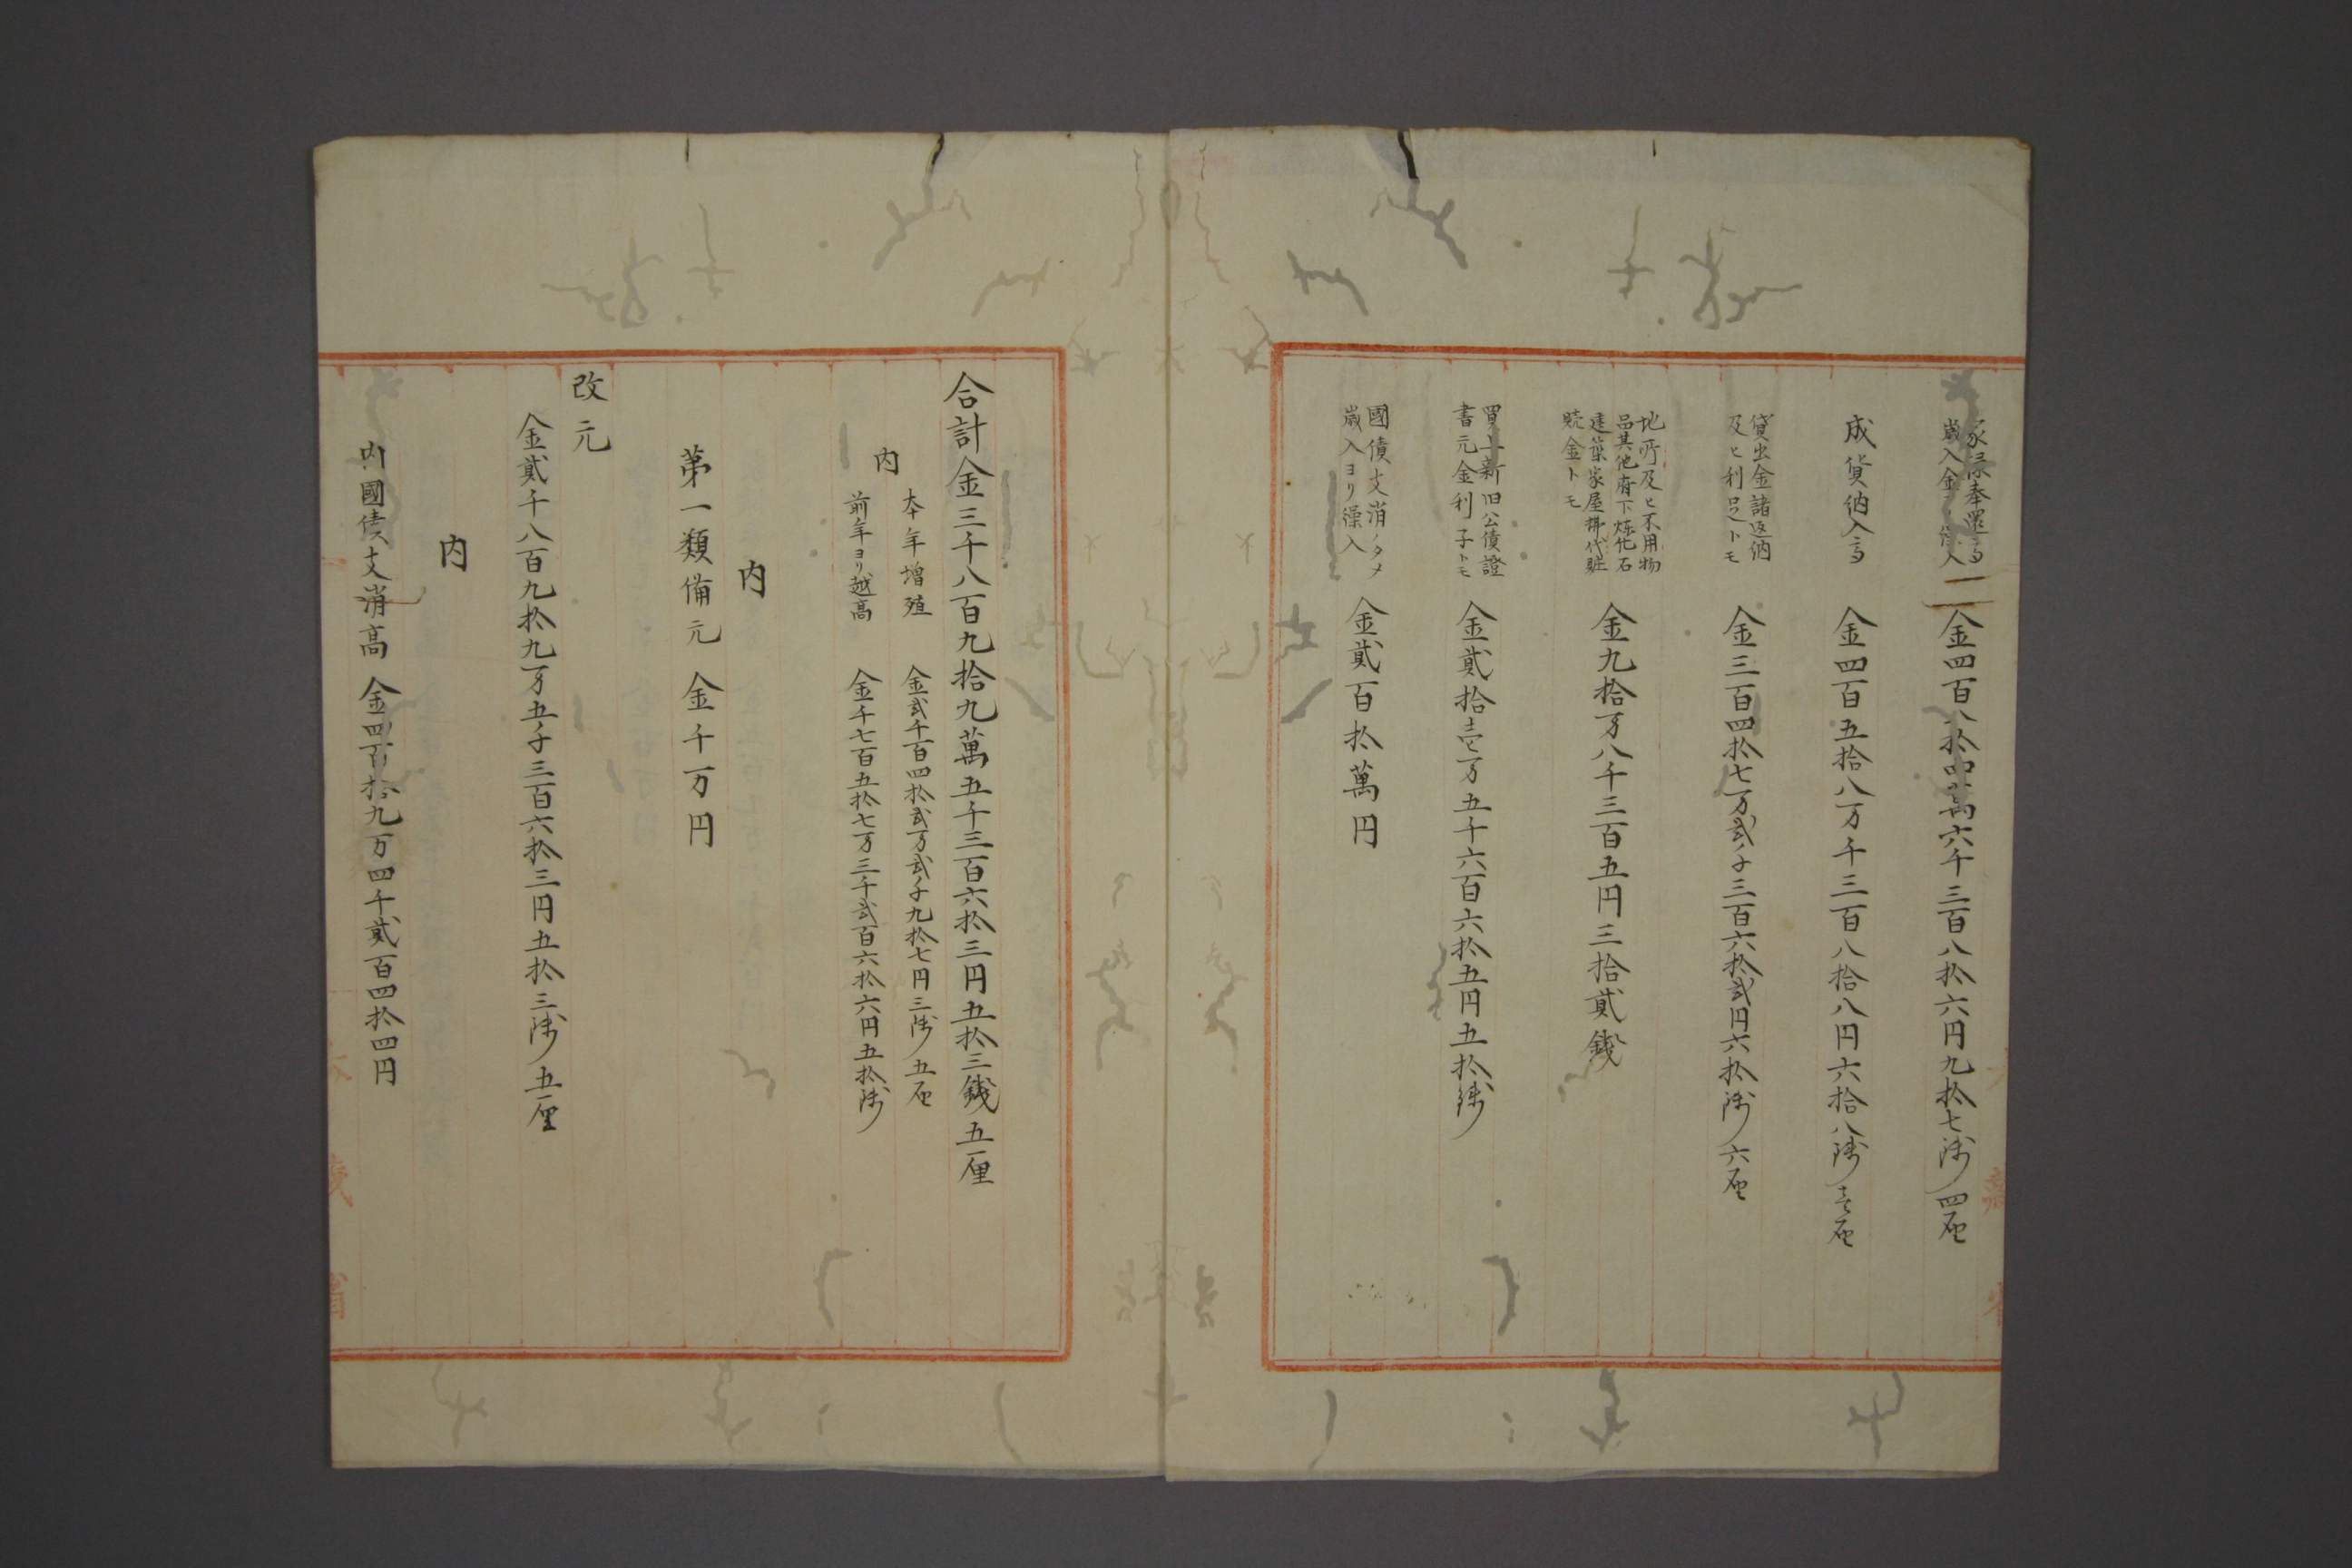 家禄奉還高
歳入金ノ内入
金四百八拾四萬六千三百八拾六円九拾七銭四厘
成貨納入高
金四百五拾八万千三百八拾八円六拾八銭壱厘
貸出金諸返納
及ヒ利足トモ
金三百四拾七万貳千三百六拾貳円六拾銭六厘
地所及ヒ不用物
品其他府下煉化石
建築家屋拂代賍
贖金トモ
金九拾万八千三百五円三拾貳錢
買上新旧公債證
書元金利子トモ
金貳拾壱万五千六百六拾五円五拾銭
國債支消ノタメ
歳入ヨリ繰入
金貳百拾萬円
合計金三千八百九拾九萬五千三百六拾三円五拾三錢五厘
内
本年増殖
金貳千百四拾貳万貳千九拾七円三銭五厘
前年ヨリ越高
金千七百五拾七万三千貳百六拾六円五拾銭
内
第一類備元 金千万円
改元
金貳千八百九拾九万五千三百六拾三円五拾三銭五厘
内
内國債支消高 金四百拾九万四千貳百四拾四円